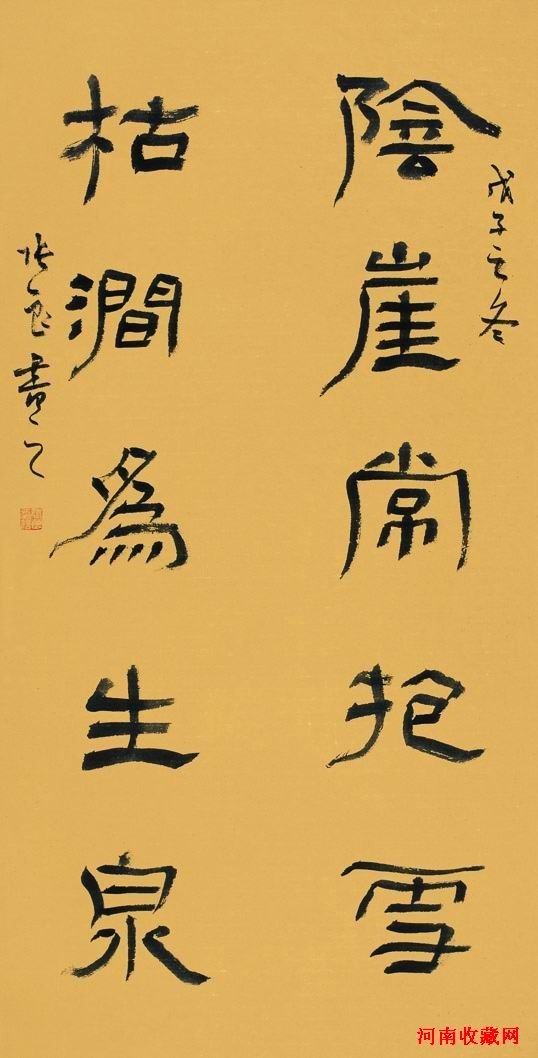 陰崖常抱雪
戊子之冬
枯澗爲生泉
書
河南收藏网